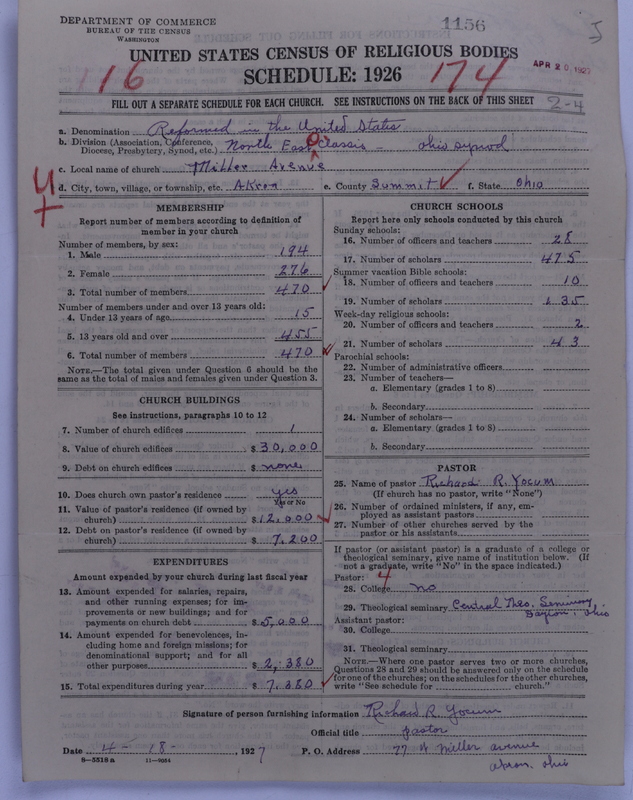 DEPARTMENT OF COMMERCE
BUREAU OF THE CENSUS
WASHINGTON
1156
UNITED STATES CENSUS OF RELIGIOUS BODIES
SCHEDULE: 1926
116
174
APR 20 1927
FILL OUT A SEPARATE SCHEDULE FOR EACH CHURCH. SEE INSTRUCTIONS ON THE BACK OF THIS SHEET
2-4
a. Denomination Reformed in the United States
b. Division (Association, Conference, Diocese, Presbytery, Synod, etc.) North East Classis - Ohio synod
c. Local name of church Miller Avenue
d. City, town, village, or township, etc. Akron e. County Summit f. State Ohio
4
MEMBERSHIP
Report number of members according to definition of member in your church
Number of members, by sex:
1. Male 194
2. Female 276
3. Total number of members 470
Number of members under and over 13 years old:
4. Under 13 years of age 15
5. 13 years old and over 455
6. Total number of members 470
NOTE.—The total given under Question 6 should be same as the total of males and females given under Question 3.
CHURCH BUILDINGS
See instructions, paragraphs 10 to 12
7. Number of church edifices 1
8. Value of church edifices $ 30,000
9. Debt on church edifices $ none
10. Does church own pastor's residence yes
Yes or No
11. Value of pastor's residence (if owned by church) $ 12,000
12. Debt on pastor's residence (if owned by church) $ 7,200
EXPENDITURES
Amount expended by your church during last fiscal year
13. Amount expended for salaries, repairs, and other running expenses; for improvements or new buildings; and for payments on church debt $ 5,000
14. Amount expended for benevolences, including home and foreign missions; for denominational support; and for all other purposes $ 2,380
15. Total expenditures during year $ 7,380
CHURCH SCHOOLS
Report here only schools conducted by this church
Sunday schools:
16. Number of officers and teachers 28
17. Number of scholars 475
Summer vacation Bible schools:
18. Number of officers and teachers 10
19. Number of scholars 135
Week-day religious schools:
20. Number of officers and teachers 2
21. Number of scholars 43
Parochial schools:
22. Number of administrative officers
23. Number of teachers—
a. Elementary (grades 1 to 8)
b. Secondary
24. Number of scholars—
a. Elementary (grades 1 to 8)
b. Secondary
PASTOR
25. Name of pastor Richard R. Yocum
(If church has no pastor, write "None")
26. Number of ordained ministers, if any, employed as assistant pastors
27. Number of other churches served by the pastor or his assistants
If pastor (or assistant pastor) is a graduate of a college or theological seminary, give name of institution below. (If not a graduate, write "No" in the space indicated.)
Pastor: 4
28. College no
29. Theological seminary Central Theo. Seminary, Dayton, Ohio
Assistant pastor:
30. College
31. Theological seminary
NOTE.—Where one pastor serves two or more churches, Questions 28 and 29 should be answered only on the schedule for one of the churches; on the schedules for the other churches, write "See schedule for church."
Signature of person furnishing information Richard R. Yocum
Official title pastor
Date 4-18-, 1927 P. O. Address 77 W Miller avenue
Akron, Ohio
8—5518a 11—9004